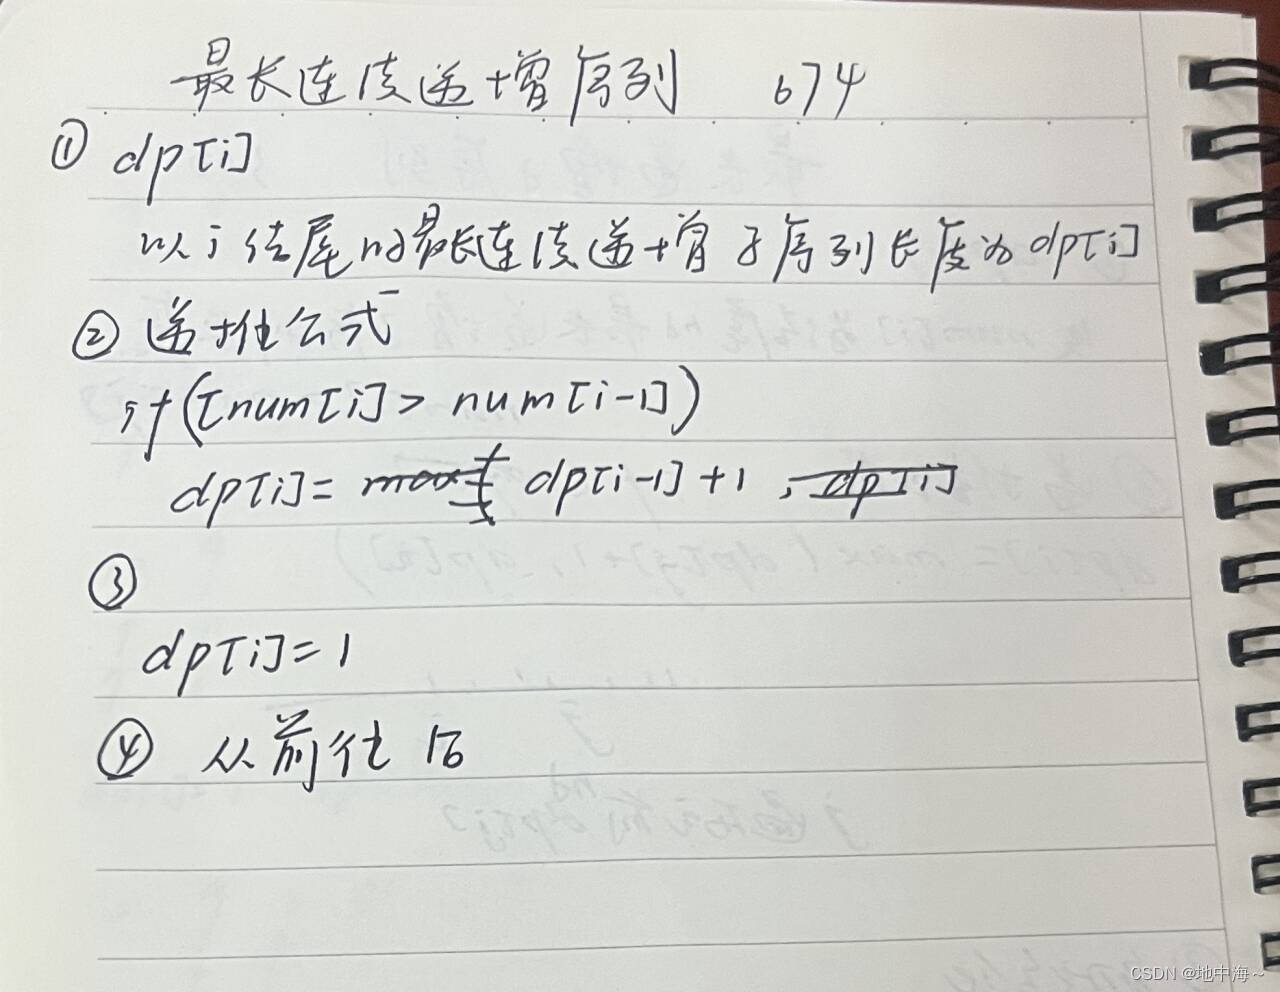 最长连续递增序列 674
① dp[i]
以i结尾的最长连续递增子序列长度为dp[i]
② 递推公式
if([num[i]> num[i-1])
dp[i]= max{ dp[i-1]+1 , dp[i]
③
dp[i]=1
④ 从前往后
CSDN @地中海~